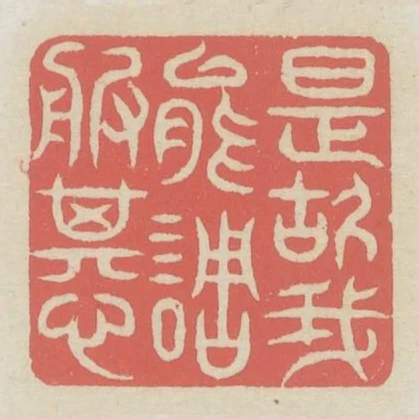 是故我
能調
服其心